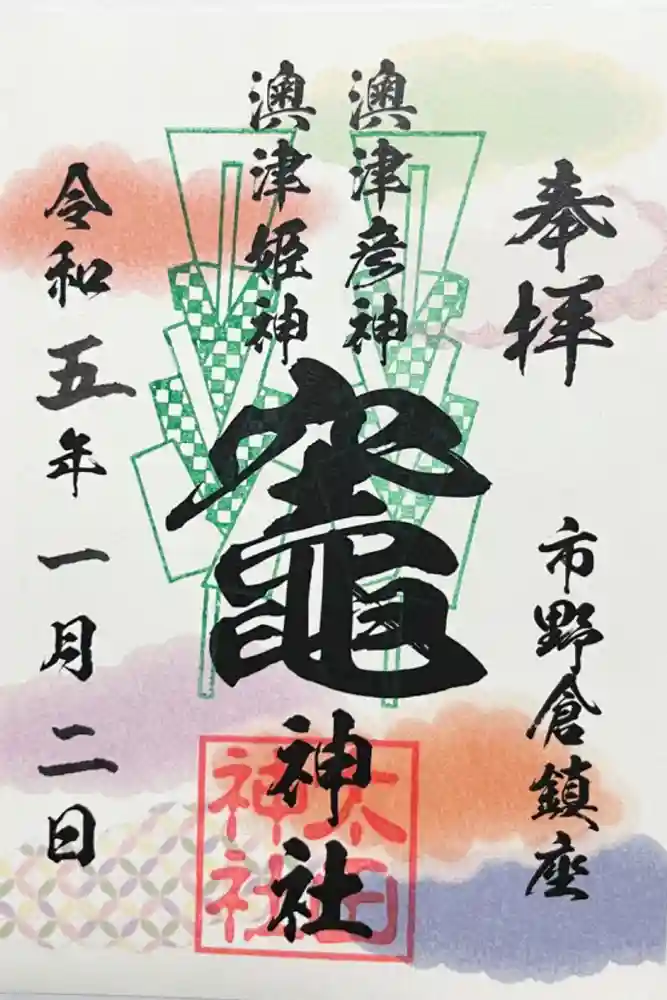 奉拝
市野倉鎮座
澳津彦神
澳津姫神
竈神社
太田神社
令和五年一月二日